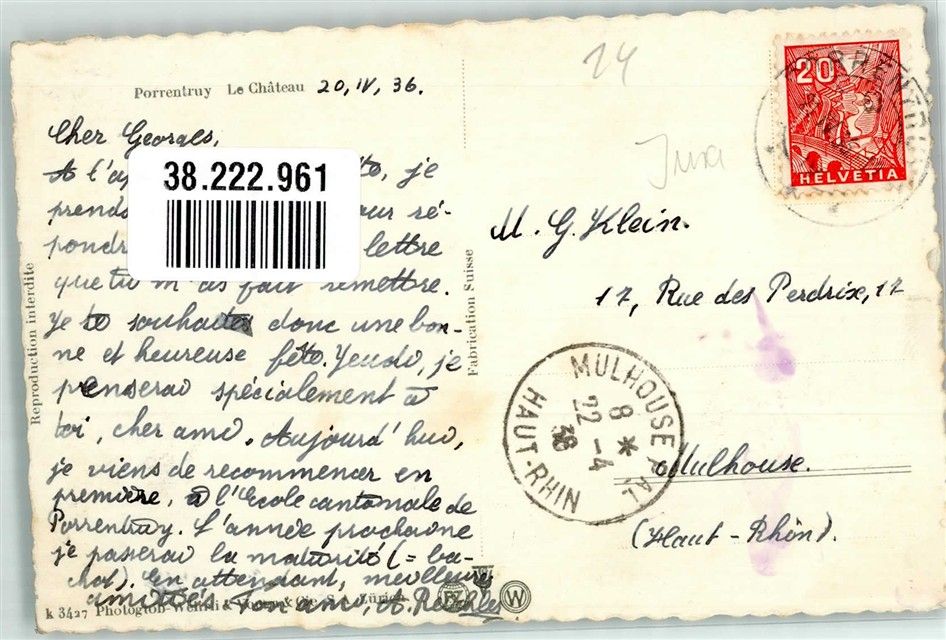 Porrentruy Le Château 20, IV, 36.
Cher Georges,
A l'a to, je
prends our ré-
pondr lettre
que tu m'as fait remettre.
Je te souhaites donc une bon-
ne et heureuse fête. Jeudi, je
penserai spécialement à
toi, cher ami. Aujourd'hui,
je viens de recommencer en
première, à l'Ecole cantonale de
Porrentruy. L'année prochaine
je passerai la maturité (= ba-
chot). En attendant, meilleures
amitiés. Ton ami, A.
k 3427 Photoglob-Wehrli & Co Zürich
Reproduction interdite
Fabrication Suisse
38.222.961
24
Jura
20
HELVETIA
PORRENTRUY
M. G. Klein.
17, Rue des Perdrix, 17
Mulhouse.
(Haut-Rhin).
MULHOUSE PAL
8 *
22-4
36
HAUT-RHIN
W